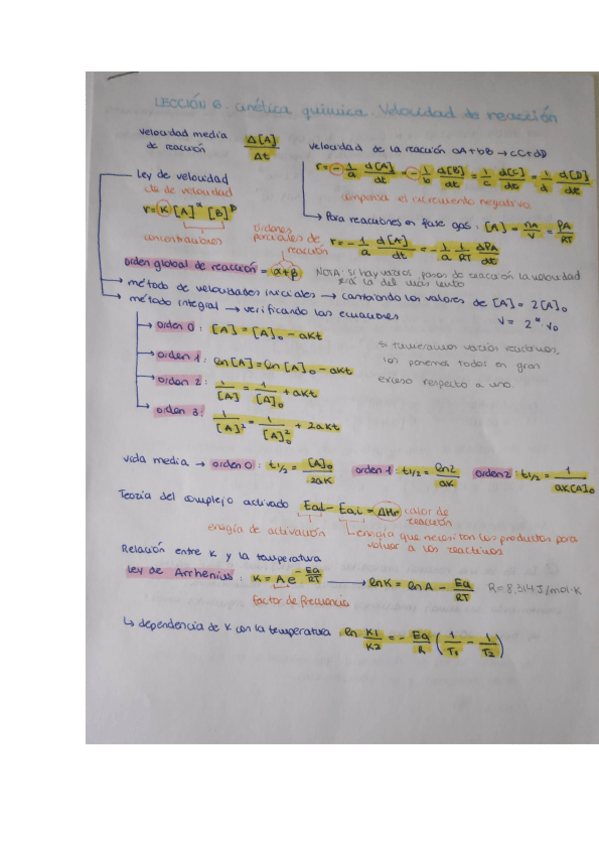 LECCIÓN 6. Cinética química. Velocidad de reacción
velocidad media de reacción Δ[A]/Δt
velocidad de la reacción aA+bB → cC+dD
r = -1/a d[A]/dt = -1/b d[B]/dt = 1/c d[C]/dt = 1/d d[D]/dt
compensa el incremento negativo
Ley de velocidad
cte de velocidad
r = K [A]^α [B]^β
concentraciones
órdenes parciales de reacción
Para reacciones en fase gas: [A] = nA/V = PA/RT
r = -1/a d[A]/dt = -1/a 1/RT dPA/dt
orden global de reacción = α+β
NOTA: si hay varios pasos de reacción la velocidad
será la del más lento
método de velocidades iniciales → cambiando los valores de [A] = 2[A]₀
v = 2^α · v₀
método integral → verificando las ecuaciones
orden 0: [A] = [A]₀ - aKt
orden 1: ln[A] = ln[A]₀ - aKt
orden 2: 1/[A] = 1/[A]₀ + aKt
orden 3: 1/[A]² = 1/[A]₀² + 2aKt
si tuvieramos varios reactivos,
los ponemos todos en gran
exceso respecto a uno.
vida media → orden 0: t1/2 = [A]₀/2aK orden 1: t1/2 = ln2/aK orden 2: t1/2 = 1/aK[A]₀
Teoría del complejo activado Ea,d - Ea,i = ΔHr calor de reacción
energía de activación
energía que necesitan los productos para
volver a los reactivos
Relación entre K y la temperatura
Ley de Arrhenius: K = A e^(-Ea/RT) → lnK = lnA - Ea/RT R = 8,314 J/mol·K
factor de frecuencia
↳ dependencia de K con la temperatura ln K1/K2 = - Ea/R (1/T1 - 1/T2)